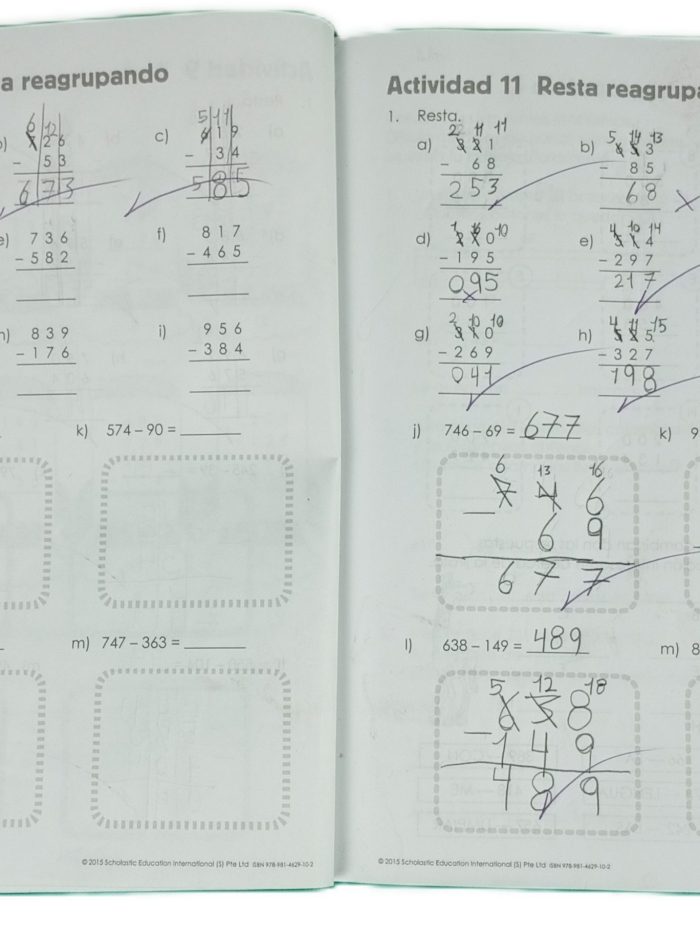 a reagrupando
6 12
7 2 6
- 5 3
6 7 3
c)
5 11
6 1 9
- 3 4
5 8 5
e) 7 3 6
- 5 8 2
f) 8 1 7
- 4 6 5
h) 8 3 9
- 1 7 6
i) 9 5 6
- 3 8 4
k) 574 – 90 =
m) 747 – 363 =
© 2015 Scholastic Education International (S) Pte Ltd ISBN 978-981-4629-10-2
Actividad 11 Resta reagrupa
1. Resta.
a)
2 11 11
3 2 1
- 6 8
2 5 3
b)
5 14 13
6 5 3
- 8 5
6 8
d)
10
0
- 1 9 5
0 9 5
e)
4 10 14
5 1 4
- 2 9 7
2 1 7
g)
2 10 10
3 1 0
- 2 6 9
0 4 1
h)
4 11 15
5 2 5
- 3 2 7
1 9 8
j) 746 – 69 = 677
6 13 16
7 4 6
- 6 9
6 7 7
k) 9
l) 638 – 149 = 489
5 12 18
6 3 8
- 1 4 9
4 8 9
m) 8
© 2015 Scholastic Education International (S) Pte Ltd ISBN 978-981-4629-10-2